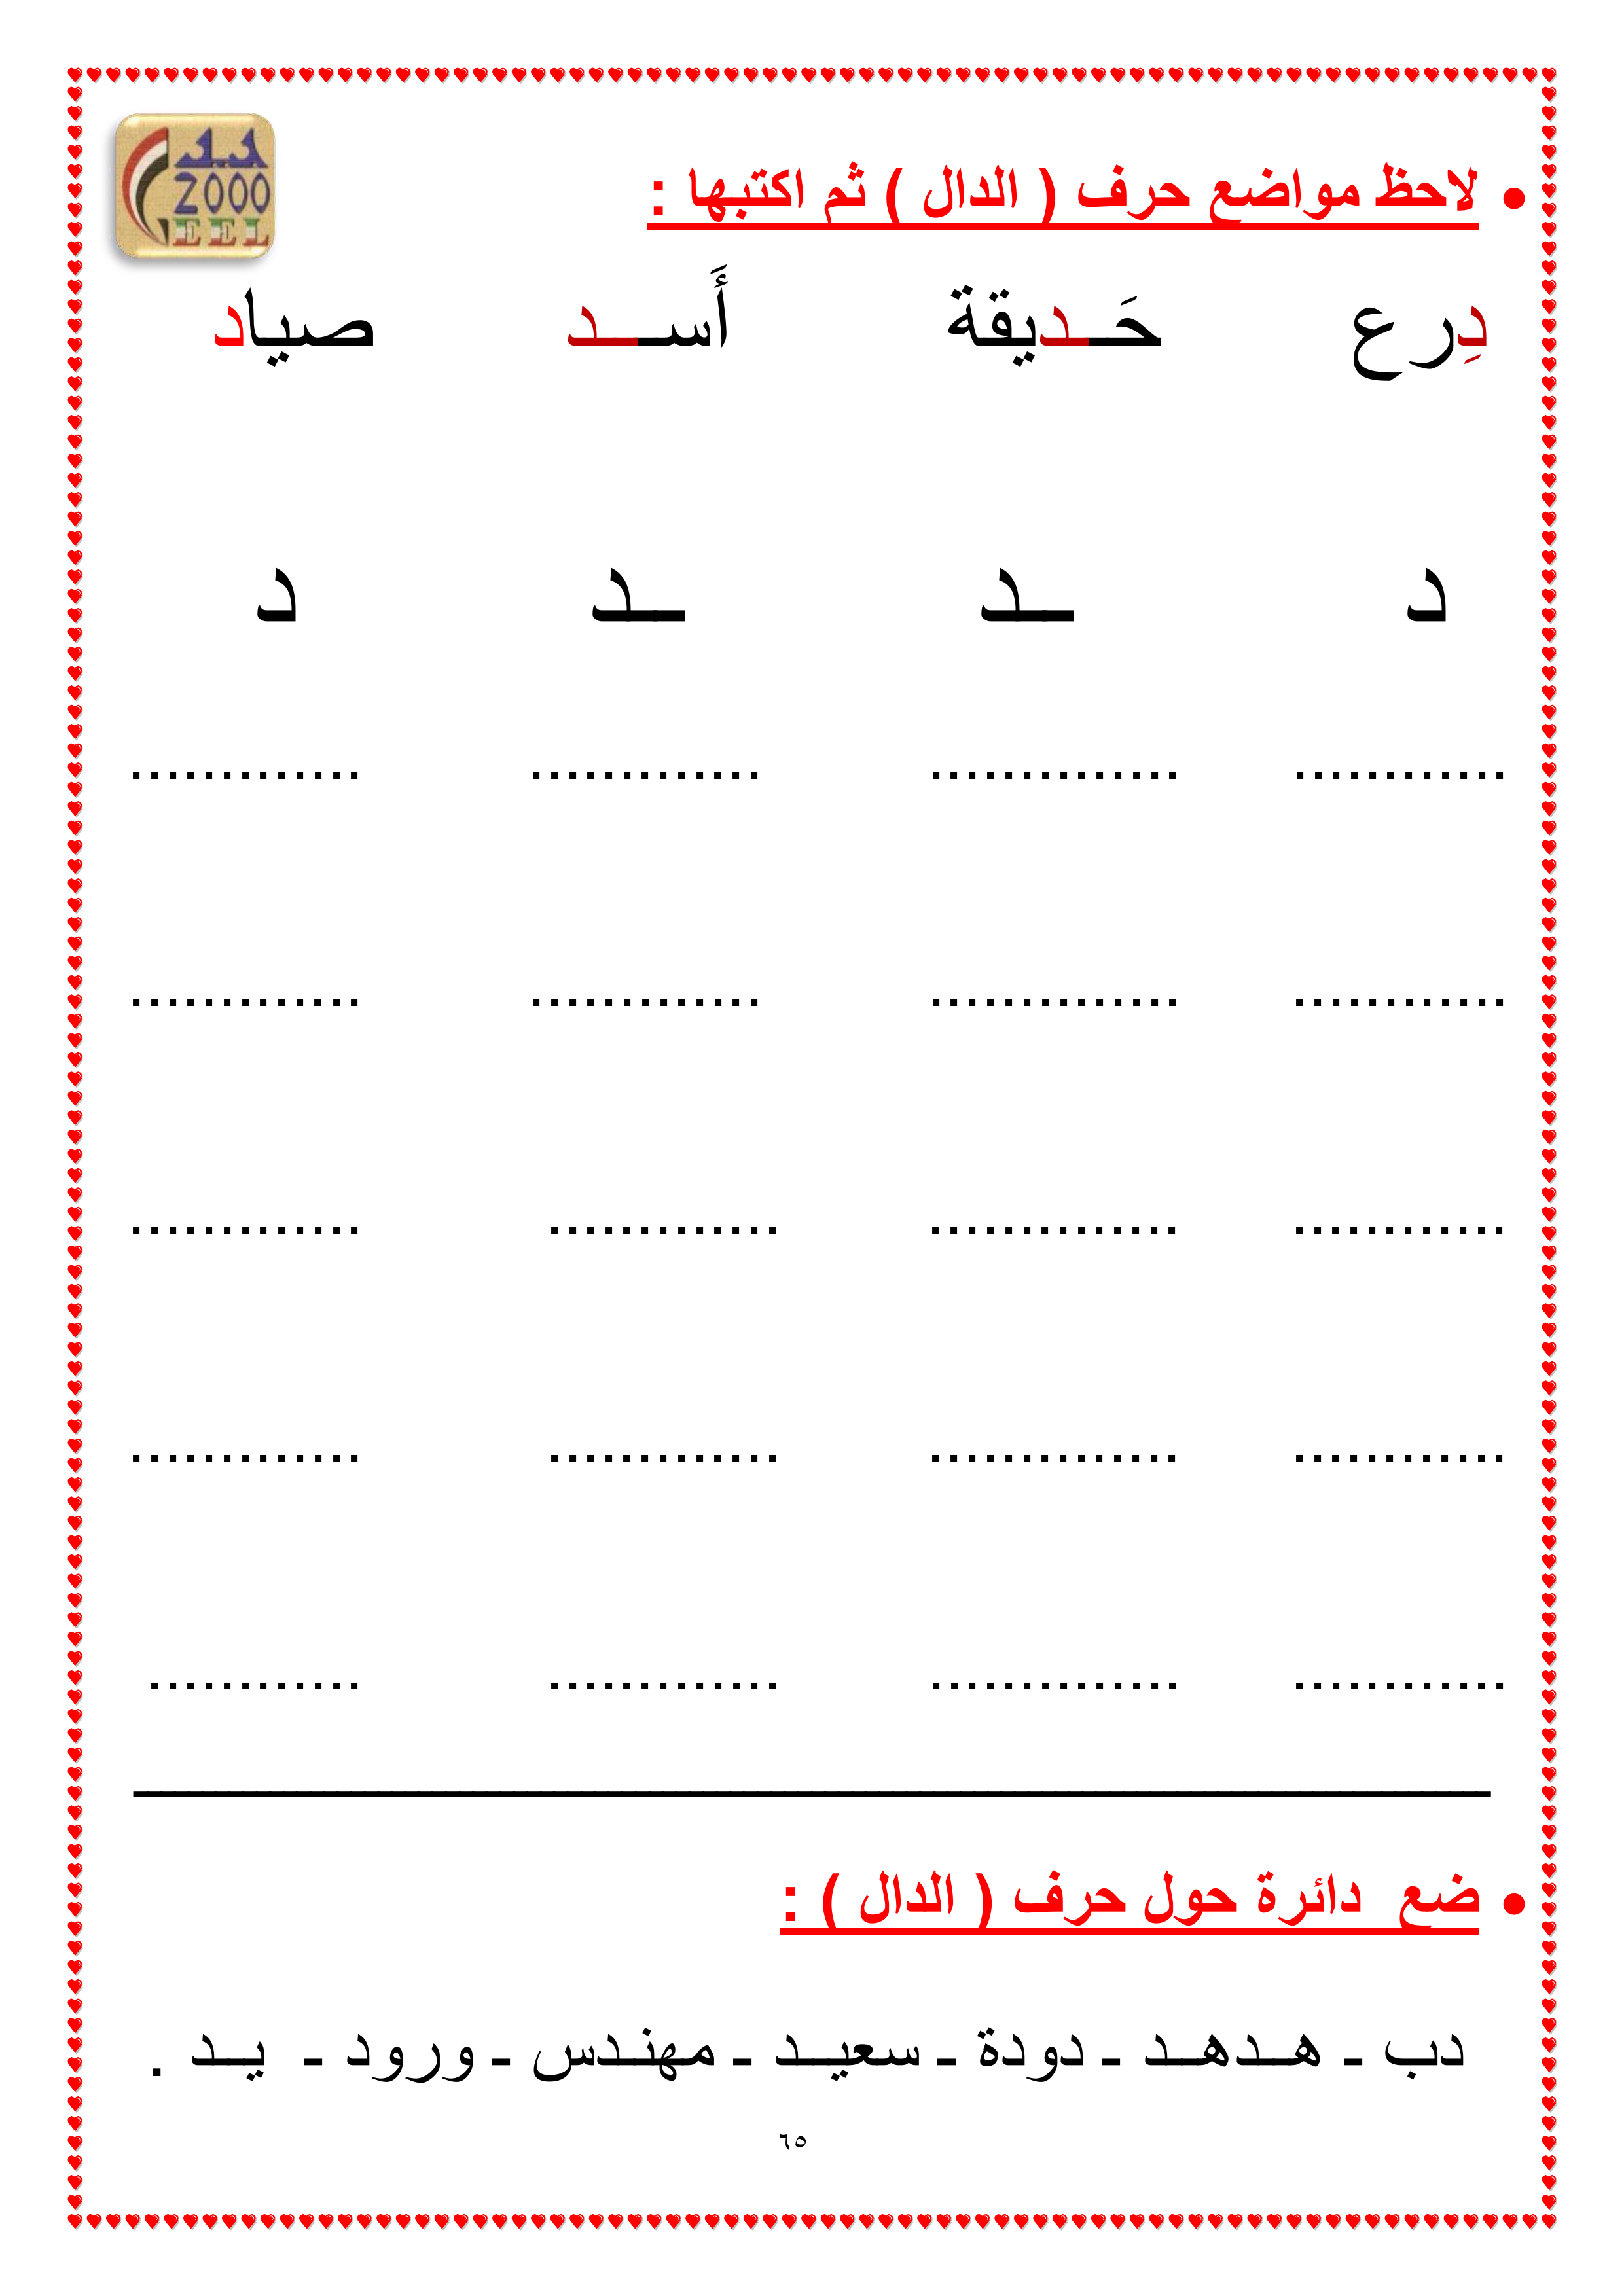 جيل
2000
EEL
• لاحظ مواضع حرف ( الدال ) ثم اكتبها :
دِرع حَــديقة أَســـد صياد
د ــد ــد د
............ .............. ............. .............
............ .............. ............. .............
............ .............. ............. .............
............ .............. ............. .............
............ .............. ............. ............
• ضع دائرة حول حرف ( الدال ) :
دب ـ هــدهــد ـ دودة ـ سعيــد ـ مهنـدس ـ ورود ـ يــد .
٦٥